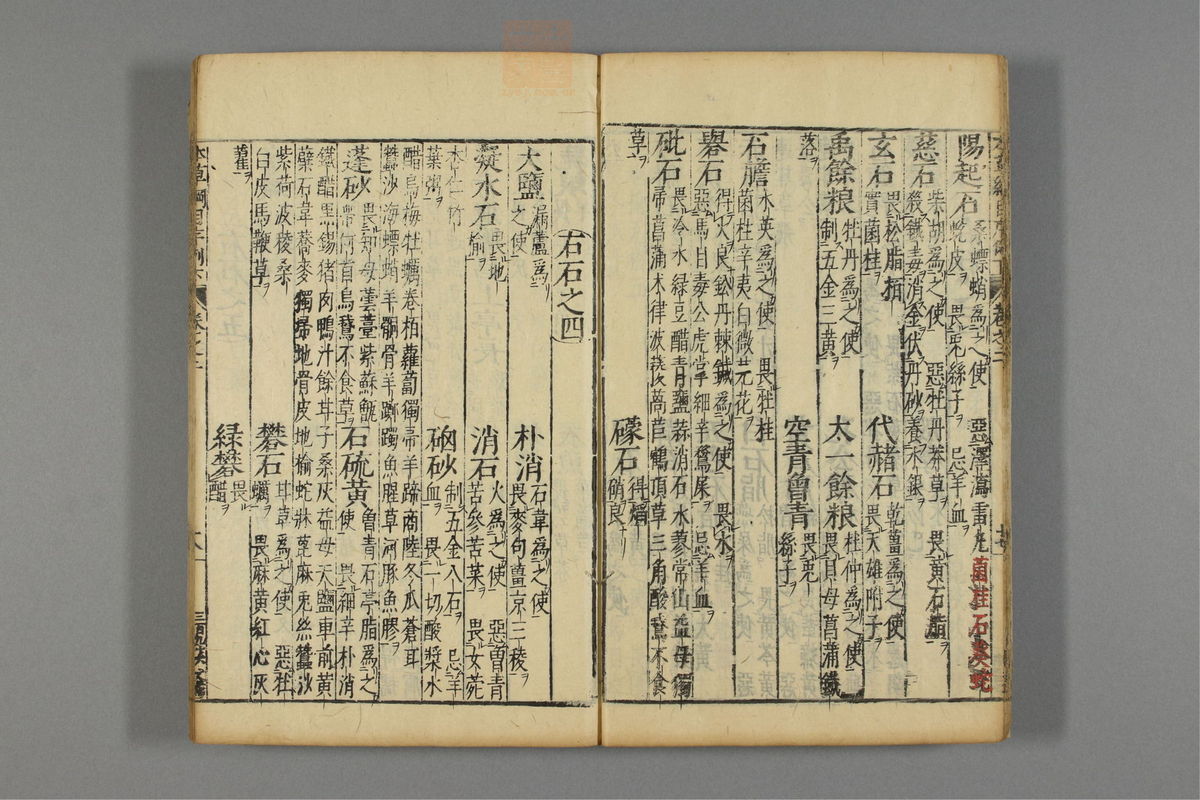 陽起石 桑螵蛸爲之使 惡澤瀉雷丸菌桂石葵蛇
蛇皮 畏兎絲子 忌羊血
慈石 柴胡爲之使 惡牡丹莽草 畏黃石脂
殺鐵毒消金伏丹砂養水銀
玄石 畏松脂栢
實菌桂
代赭石 乾薑爲之使
畏天雄附子
禹餘粮 牡丹爲之使
制五金三黃
太一餘粮 杜仲爲之使
畏貝母菖蒲鐵
落
空青曾青 畏兎
絲子
石膽 水英爲之使 畏牡桂
菌桂辛夷白微芫花
礜石 得火良鉛丹棘鍼爲之使 畏水
惡馬目毒公虎掌細辛鶩屎 忌羊血
砒石 畏冷水緑豆醋青鹽蒜消石水蓼常山益母獨
帚菖蒲木律波薐萵苣鶴頂草三角酸鵞不食
草
礞石 得熖
硝良
石石之四
大鹽 漏蘆爲
之使
朴消 石韋爲之使
畏麥句薑京三稜
凝水石 畏地
榆
消石 火爲之使 惡曾青
苦參苦菜 畏女菀
杏仁
葉粥
硇砂 制五金八石 忌羊
血 畏一切酸漿水
醋烏梅牡蠣卷栢蘿蔔獨帚羊蹄商陸冬瓜蒼耳
蠶沙海螵蛸羊䯊骨羊躑躅魚腥草河豚魚膠
蓬砂 畏知母蕓薹紫蘇甑
帶何首烏鵞不食草
石硫黃 曾青石亭脂爲之
使 畏細辛朴消
鐵醋黑錫猪肉鴨汁餘甘子桑灰益母天鹽車前黃
蘗石韋蕎麥獨帚地骨皮地榆蛇牀蓖麻兎絲蠶沙
紫荷波稜桑
白皮馬鞭草
礬石 甘草爲之使 惡牡
蠣 畏麻黃紅心灰
藋
緑礬 畏
醋